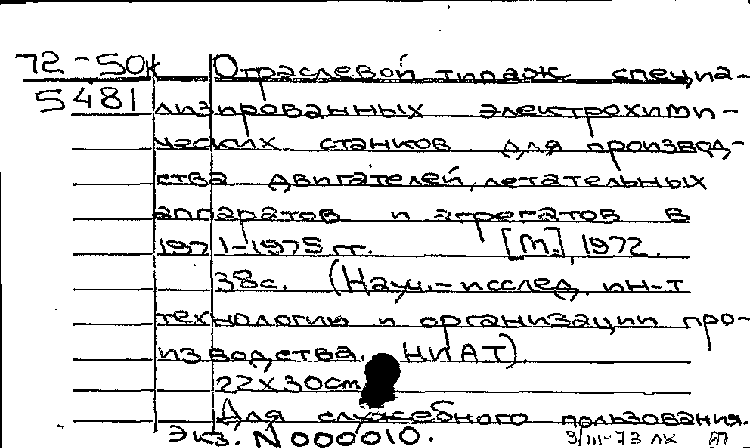 72-50к Отраслевой типаж специа-
5481 лизированных электрохими-
ческих станков для производ-
ства двигателей, летательных
аппаратов и агрегатов в
1971-1975 гг. [М.], 1972.
38с. (Науч.-исслед. ин-т
технологии и организации про-
изводства. НИАТ).
22х30cm
Для служебного пользования.
Экз. N 000010. 3/III-73 лк